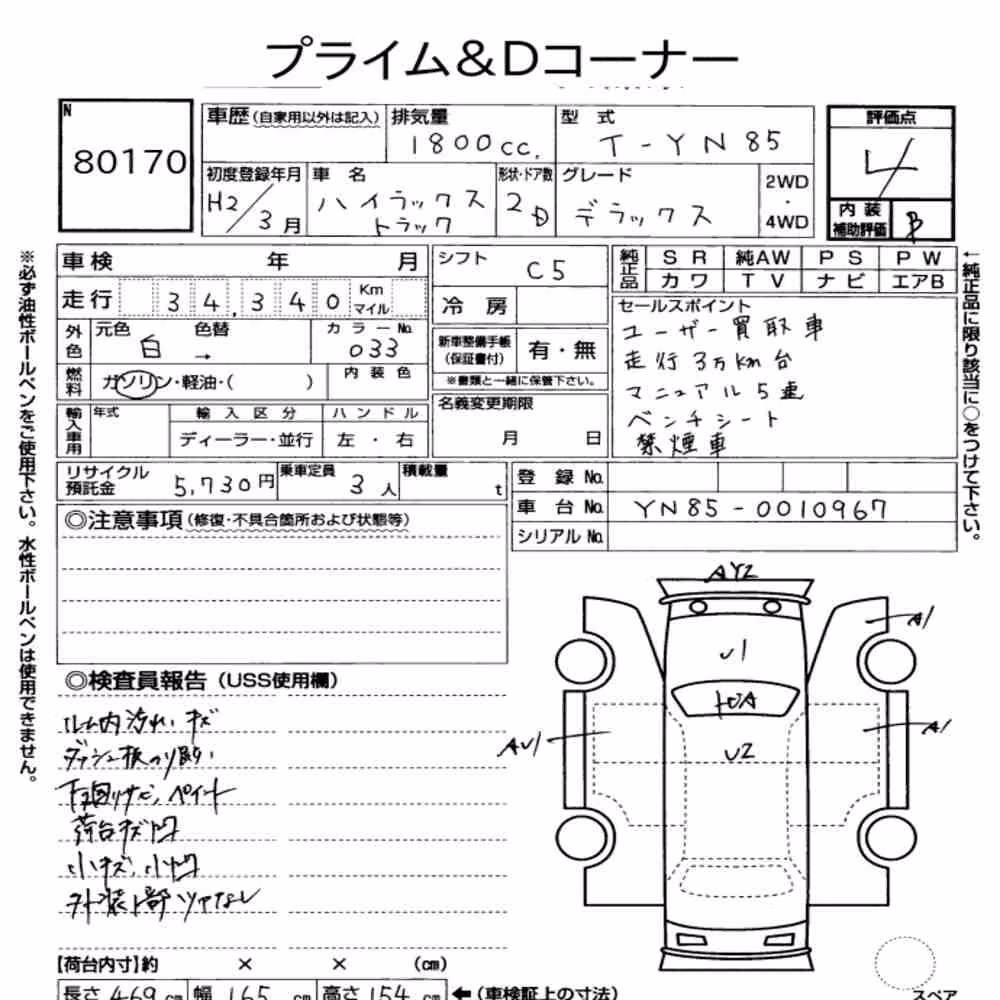 プライム&Dコーナー
N
80170
車歴(自家用以外は記入)
排気量
1800cc.
型式
T-YN85
評価点
4
初度登録年月
H2/3月
車名
ハイラックス
トラック
形状・ドア数
2D
グレード
デラックス
2WD
・
4WD
内装
補助評価
B
車検 年 月
シフト
C5
純正品
SR 純AW PS PW
カワ TV ナビ エアB
走行 34,340 Km マイル
冷房
セールスポイント
ユーザー買取車
走行3万km台
マニュアル5速
ベンチシート
禁煙車
外色
元色 色替
白 →
カラーNo.
033
新車整備手帳
(保証書付)
有・無
※書類と一緒に保管下さい。
燃料
ガソリン・軽油・( )
内装色
名義変更期限
月 日
輸入車用
年式
輸入区分
ハンドル
ディーラー・並行
左・右
リサイクル
預託金
5,730円
乗車定員
3人
積載量
t
登録No.
車台No. YN85-0010967
シリアルNo.
◎注意事項(修復・不具合箇所および状態等)
◎検査員報告(USS使用欄)
ルーム内汚れ、キズ
ダッシュ板のり跡い
下回りサビ、ペイント
荷台キズ凹
小キズ、小凹
外装上部ツヤなし
AY2
A1
U1
A1
AU1
U2
【荷台内寸】約 × × (cm)
長さ469cm 幅165cm 高さ154cm ←(車検証上の寸法)
スペア
※必ず油性ボールペンをご使用下さい。水性ボールペンは使用できません。
←純正品に限り該当に○をつけて下さい。